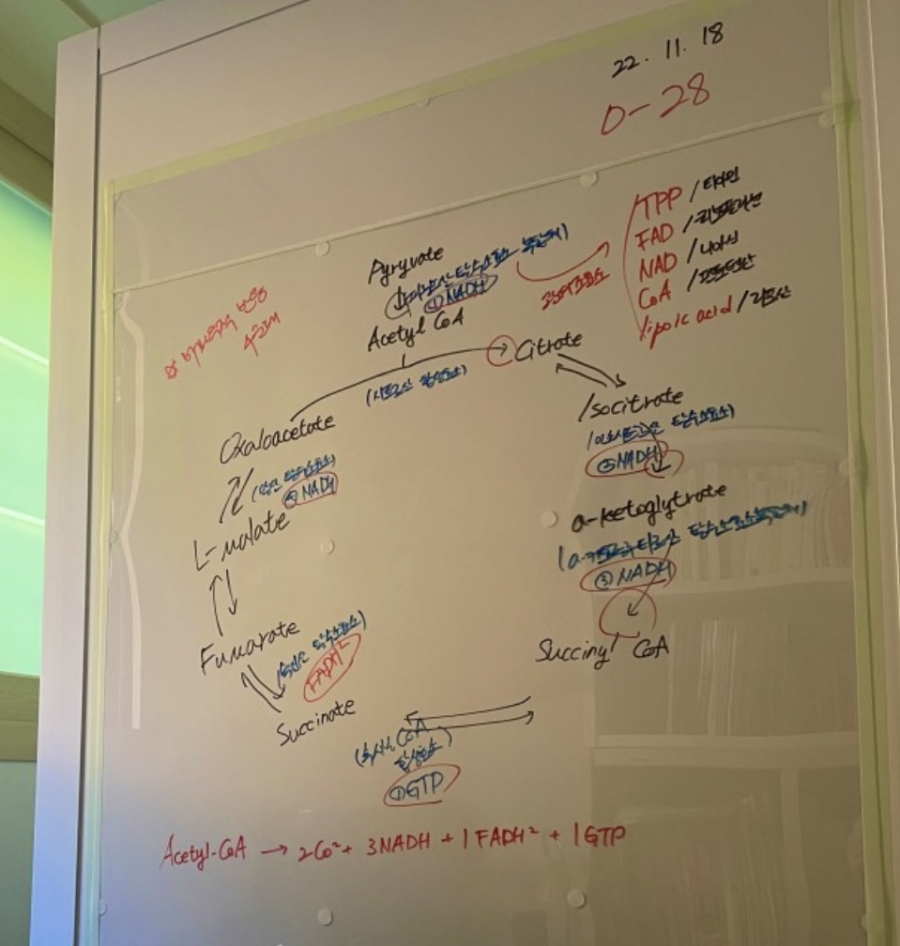 22. 11. 18
D-28
Pyryvate
(피루브산 탈수소효소 복합체)
①NADH
Acetyl CoA
TPP / 티아민
FAD / 리보플라빈
NAD / 나이아신
CoA / 판토텐산
lipoic acid / 리포산
비가역적 반응
4군데
Citrate
(시트르산 합성효소)
Isocitrate
(이소시트르산 탈수소효소)
②NADH
a-ketoglytrate
(a-케토글루타르산 탈수소효소복합체)
③NADH
Succinyl CoA
Oxaloacetate
(말산 탈수소효소)
④NADH
L-malate
Fumarate
(숙신산 탈수소효소)
FADH²
Succinate
(숙시닐 CoA
합성효소)
①GTP
Acetyl-CoA → 2Co²+ 3NADH + 1FADH² + 1GTP